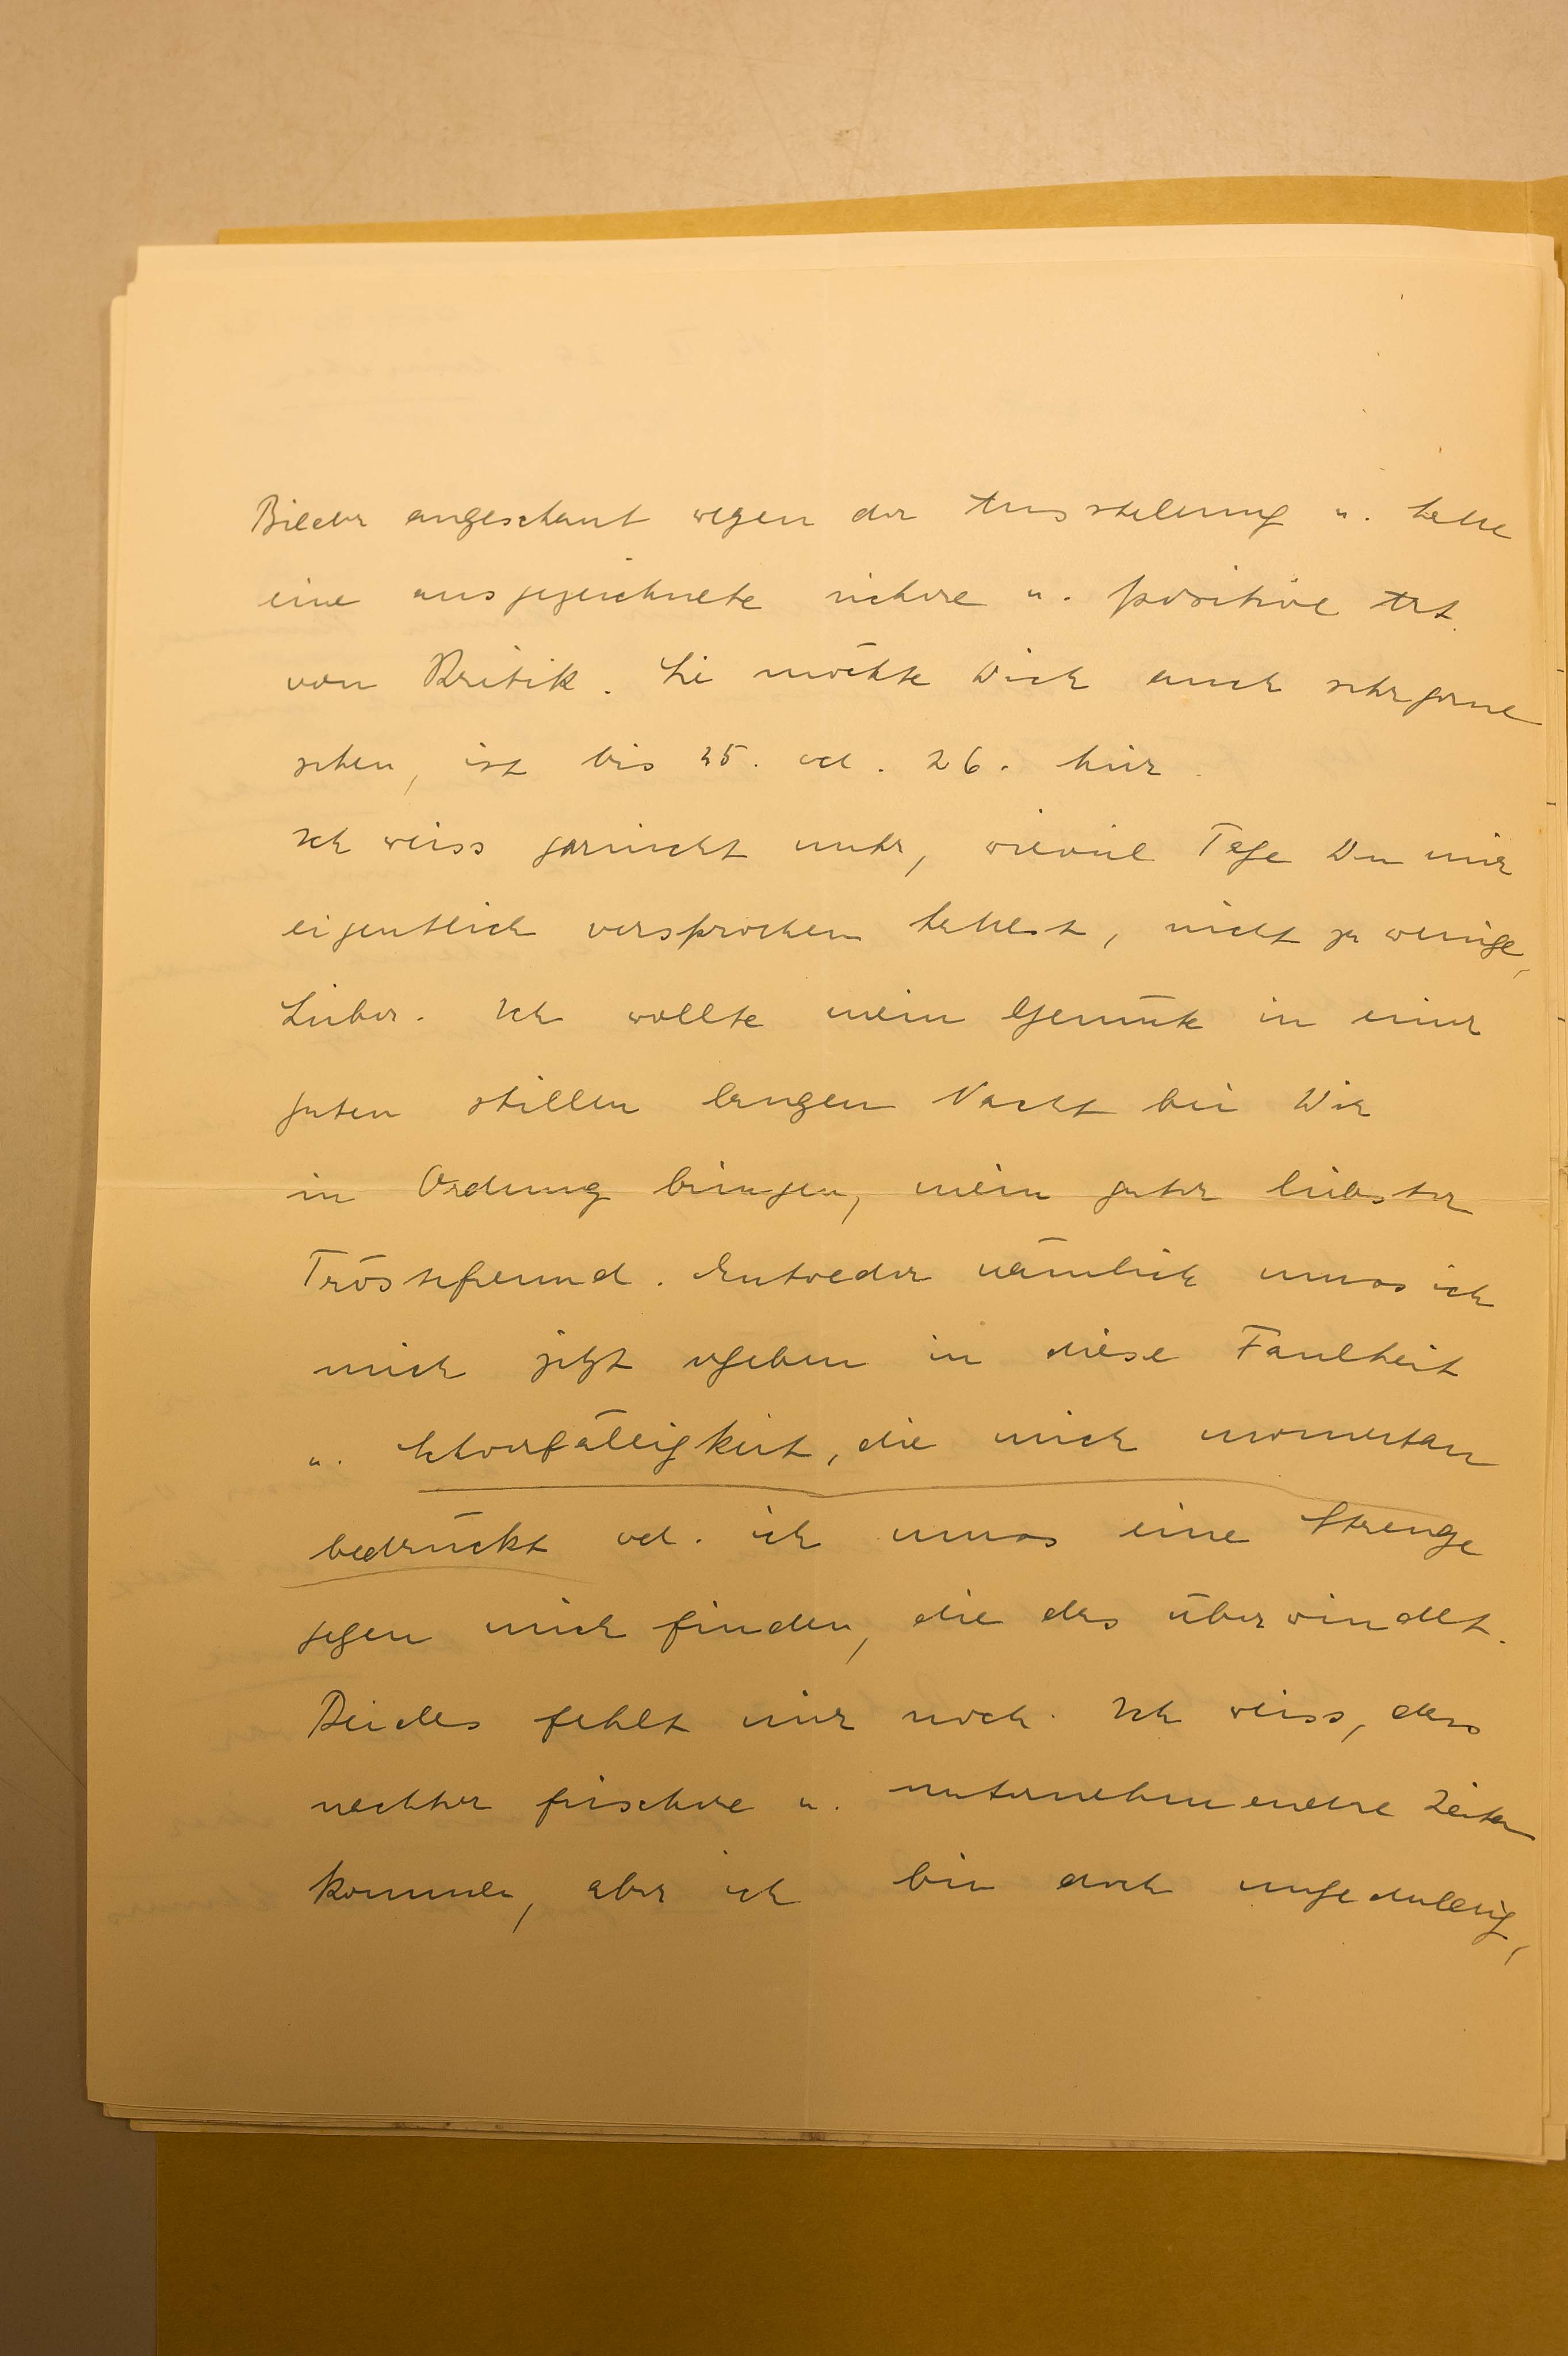 Bilder angeschaut wegen der Ausstellung u. hatte
eine ausgezeichnete sichere u. positive Art
von Kritik. Sie möchte Dich auch sehr gerne
sehen, ist bis 25. od. 26. hier.
Ich weiss garnicht mehr, wieviel Tage Du mir
eigentlich versprochen hattest, nicht zu wenige,
Lieber. Ich wollte mein Gemüte in einer
guten stillen langen Nacht bei Dir
in Ordnung bringen, mein guter liebster
Tröstefreund. Entweder nämlich muss ich
mich jetzt ergeben in diese Faulheit
u. Schwerfälligkeit, die mich momentan
bedrückt od. ich muss eine Strenge
gegen mich finden, die das überwindet.
Beides fehlt mir noch. Ich weiss, dass
nachher frischere u. unternehmendere Zeiten
kommen, aber ich bin doch ungeduldig,